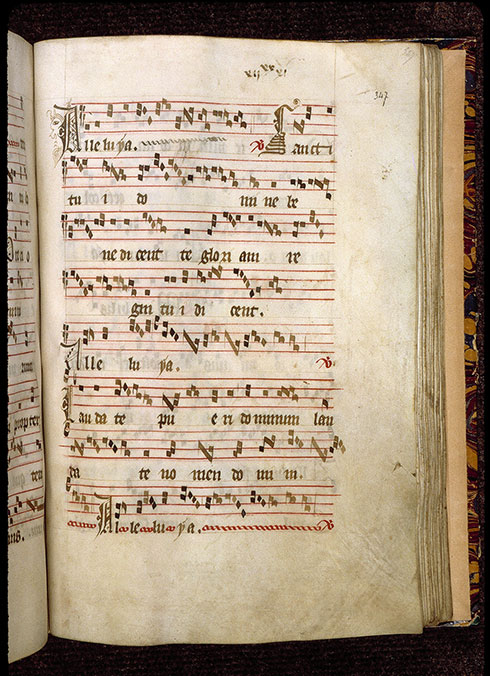 347
Alleluya. ℣ Sancti
tu i do mi ne be
ne di cent te glori am re
gni tu i di cent.
Alle lu ya. ℣
Lau da te pu e ri dominum lau
da te no men do mi ni.
Al le lu ya. ℣